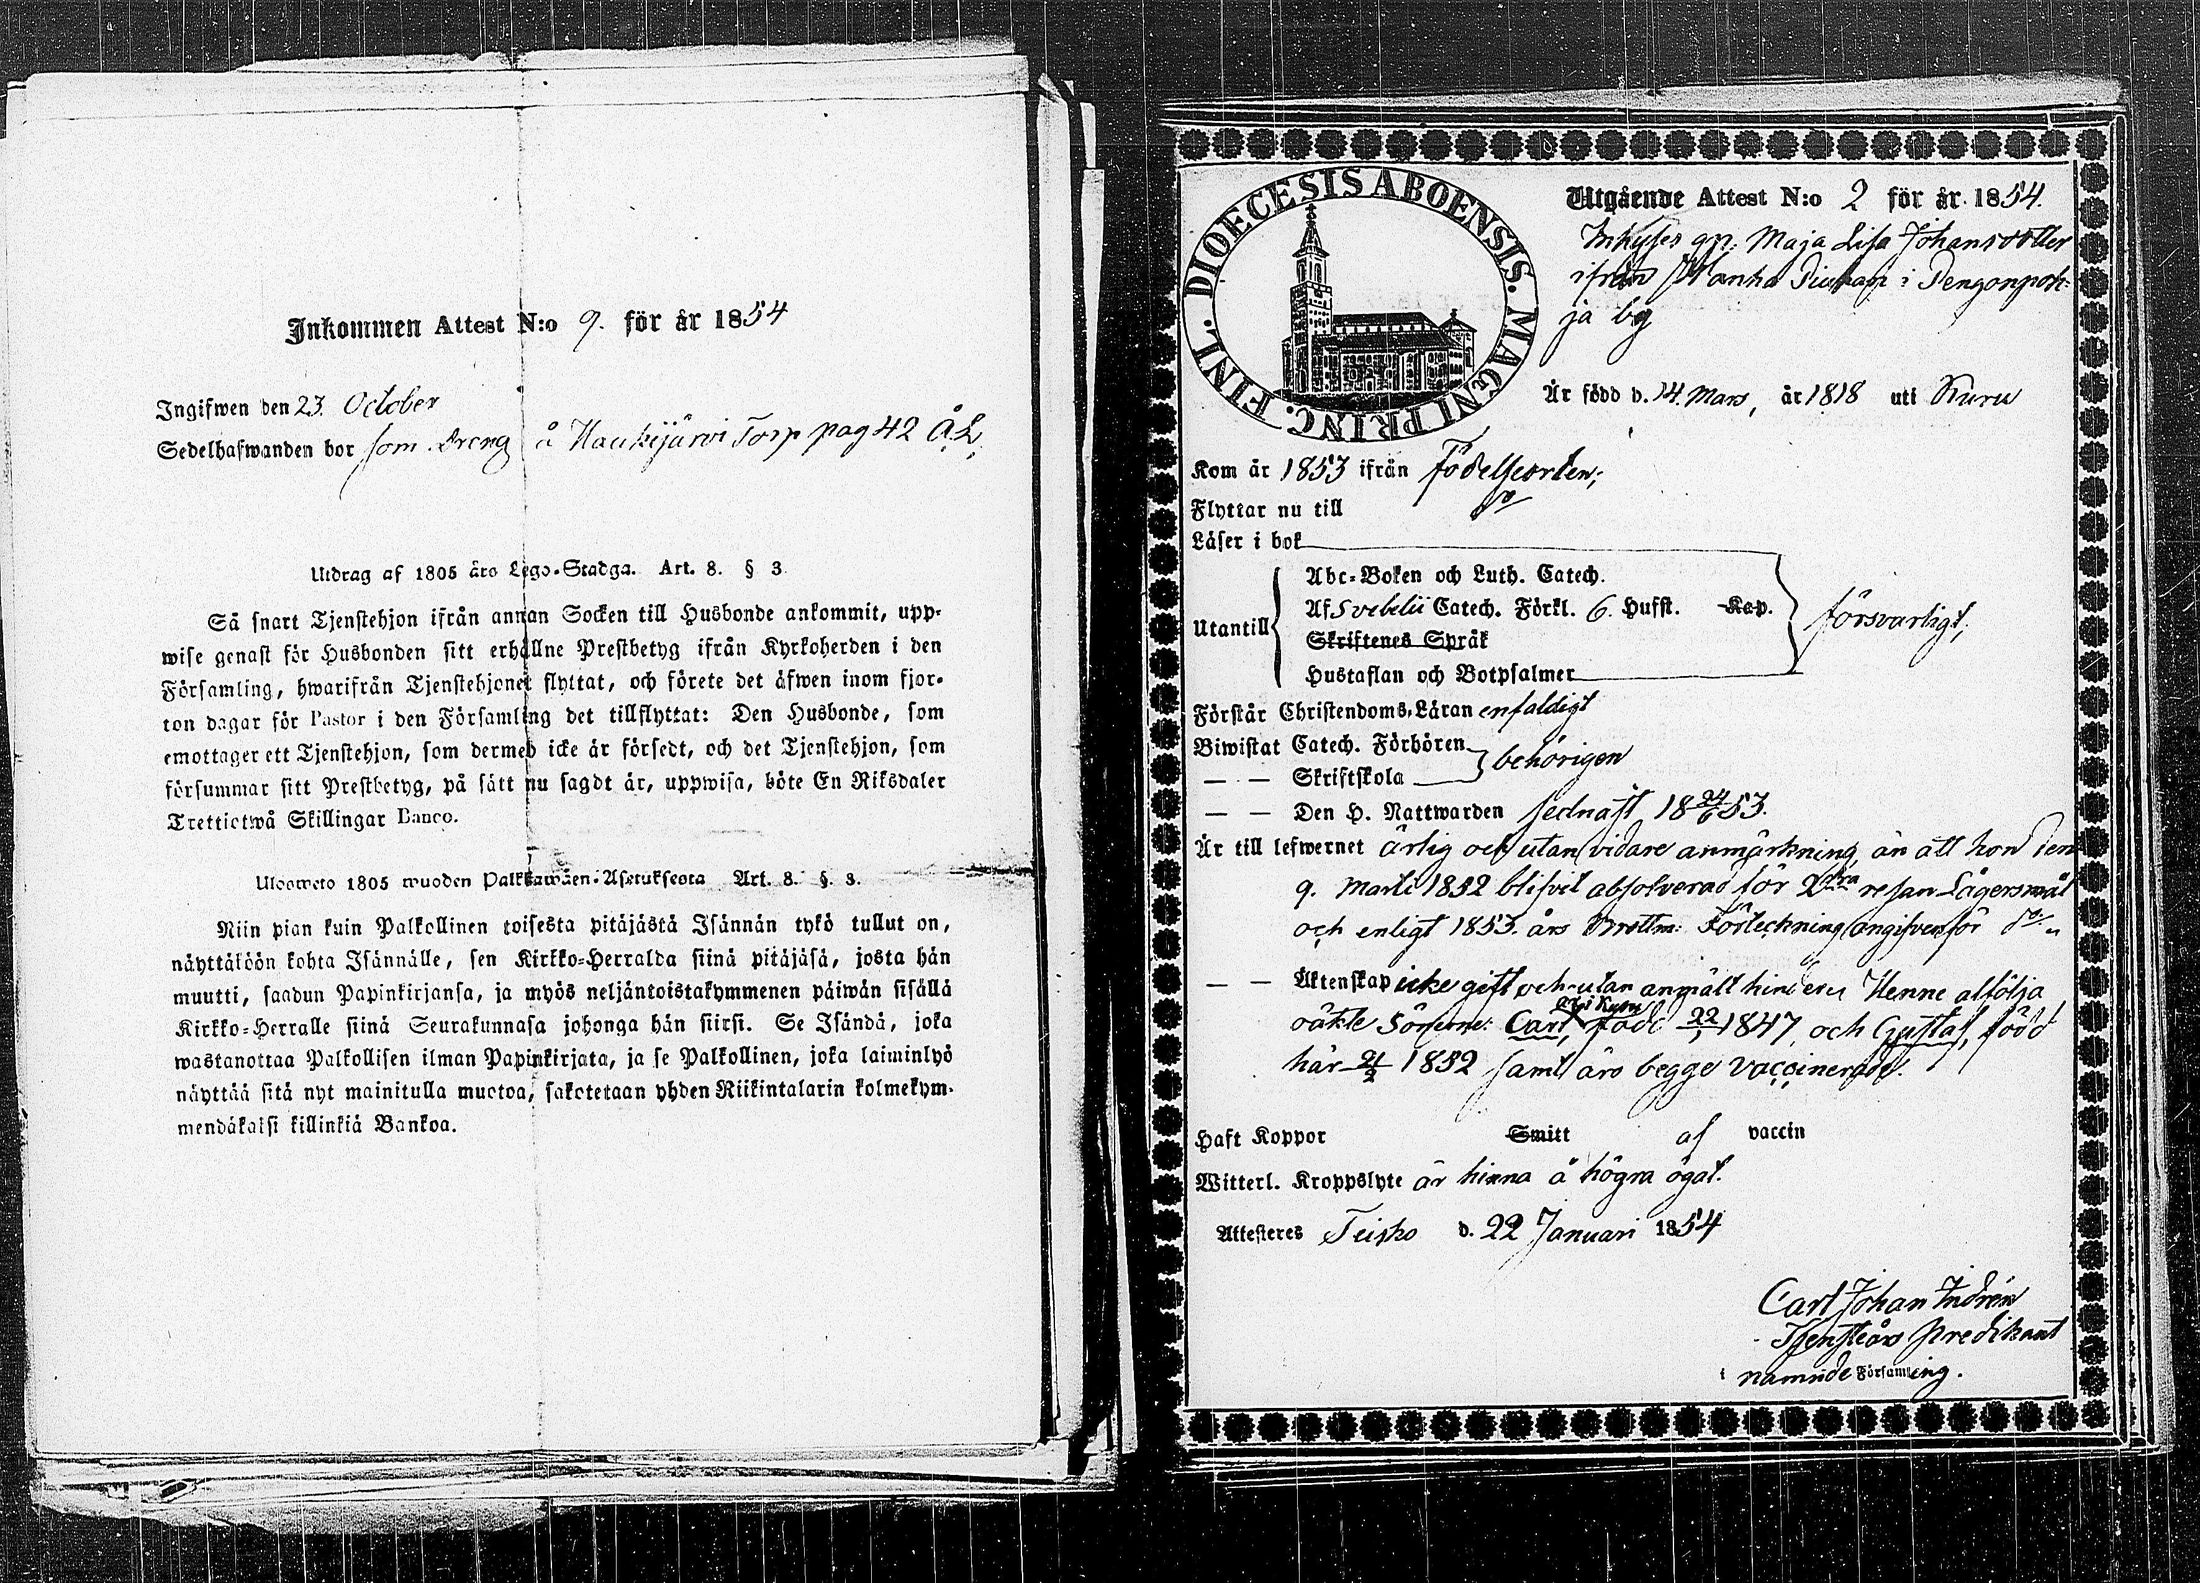 Inkommen Attest N:o 9. för år 1854
Ingifwen den 23. October
Sedelhafwanden bor som Dreng å Haukijärvi Torp pag 42 Å.L.
Utdrag af 1805 års Lego-Stadga. Art. 8. § 3
Så snart Tjenstehjon ifrån annan Socken till Husbonde ankommit, upp-
wise genast för Husbonden sitt erhållne Prestbetyg ifrån Kyrkoherden i den
Församling, hwarifrån Tjenstehjonet flyttat, och förete det äfwen inom fjor-
ton dagar för Pastor i den Församling det tillflyttat: Den Husbonde, som
emottager ett Tjenstehjon, som dermed icke är försedt, och det Tjenstehjon, som
försummar sitt Prestbetyg, på sätt nu sagdt är, uppwisa, böte En Riksdaler
Trettiotwå Skillingar Banco.
Ulosweto 1805 wuoden Palkkawäen-Asetuksesta Art. 8. §. 3.
Niin pian kuin Palkollinen toisesta pitäjästä Isännän tykö tullut on,
näyttäköön kohta Isännälle, sen Kirkko-Herralda siinä pitäjäsä, josta hän
muutti, saadun Papinkirjansa, ja myös neljäntoistakymmenen päiwän sisällä
Kirkko-Herralle siinä Seurakunnasa johonga hän siirsi. Se Isändä, joka
wastanottaa Palkollisen ilman Papinkirjata, ja se Palkollinen, joka laiminlyö
näyttää sitä nyt mainitulla muotoa, sakotetaan yhden Riikintalarin kolmekym-
mendäkaksi killinkiä Bankoa.
DIOECESIS ABOENSIS. MAGNI PRINC. FINL.
Utgående Attest N:o 2 för år 1854.
Inhyses qp. Maja Lisa Johansdotter
ifrån Wanha i Pengonpoh-
ja by
Är född d. 14. Mars, år 1818 uti Kuru
Kom år 1853 ifrån Födelseorten;
Flyttar nu till
Läser i bok
Utantill
Abc-Boken och Luth. Catech.
Af Svebelii Catech. Förkl. 6. Hufst. Kap.
Skriftenes Språk
Hustaflan och Botpsalmer
försvarligt;
Förstår Christendoms-Läran enfaldigt
Biwistat Catech. Förhören
— — Skriftskola
behörigen
— — Den H. Nattwarden sednast 18 24/6 53.
Är till lefwernet ärlig och utan vidare anmärkning, än att hon den
9. Martii 1852 blifvit absolverad för 2dra resan Lägersmål
och enligt 1853. års Brottm: Förteckning angifven för do
— — Äktenskap icke gift och utan anmält hinder. Henne alfölja
oäkte Sönerne: Carl, i Kuru född 22/1 1847, och Gustaf, född
här 21/2 1852 samt äro begge vaccinerade.
Haft Koppor Smitt af vaccin
Witterl. Kroppslyte är hinna å högra ögat.
Attesteres Teisko d. 22 Januari 1854
Carl Johan Indrén
Tjensteårs predikant
i namnde Församling.